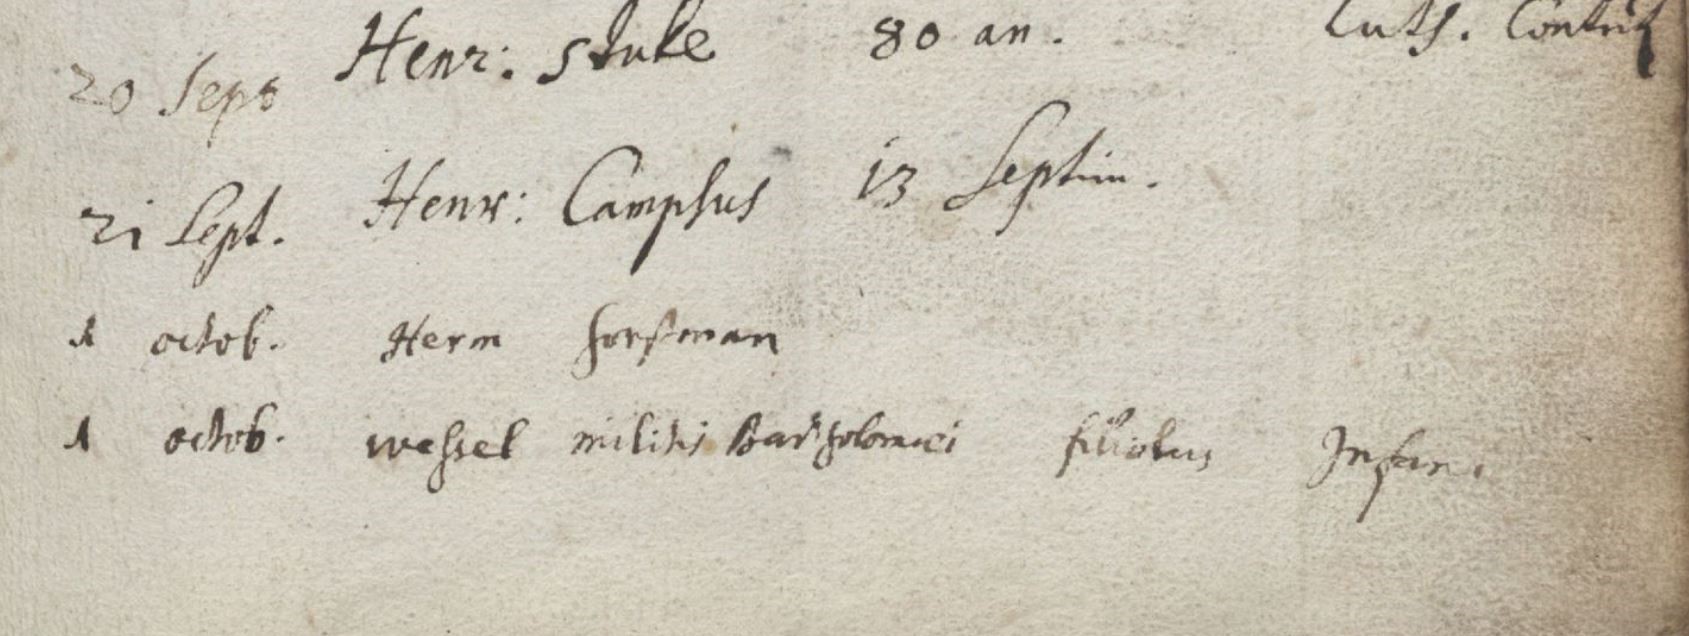 20 Sept Henr: stuke 80 an. Luth.
21 Sept. Henr: Camphus 13 Septim.
1 octob. Herm horstman
1 octob. wessel militis Bartholomaei filiolus Infans